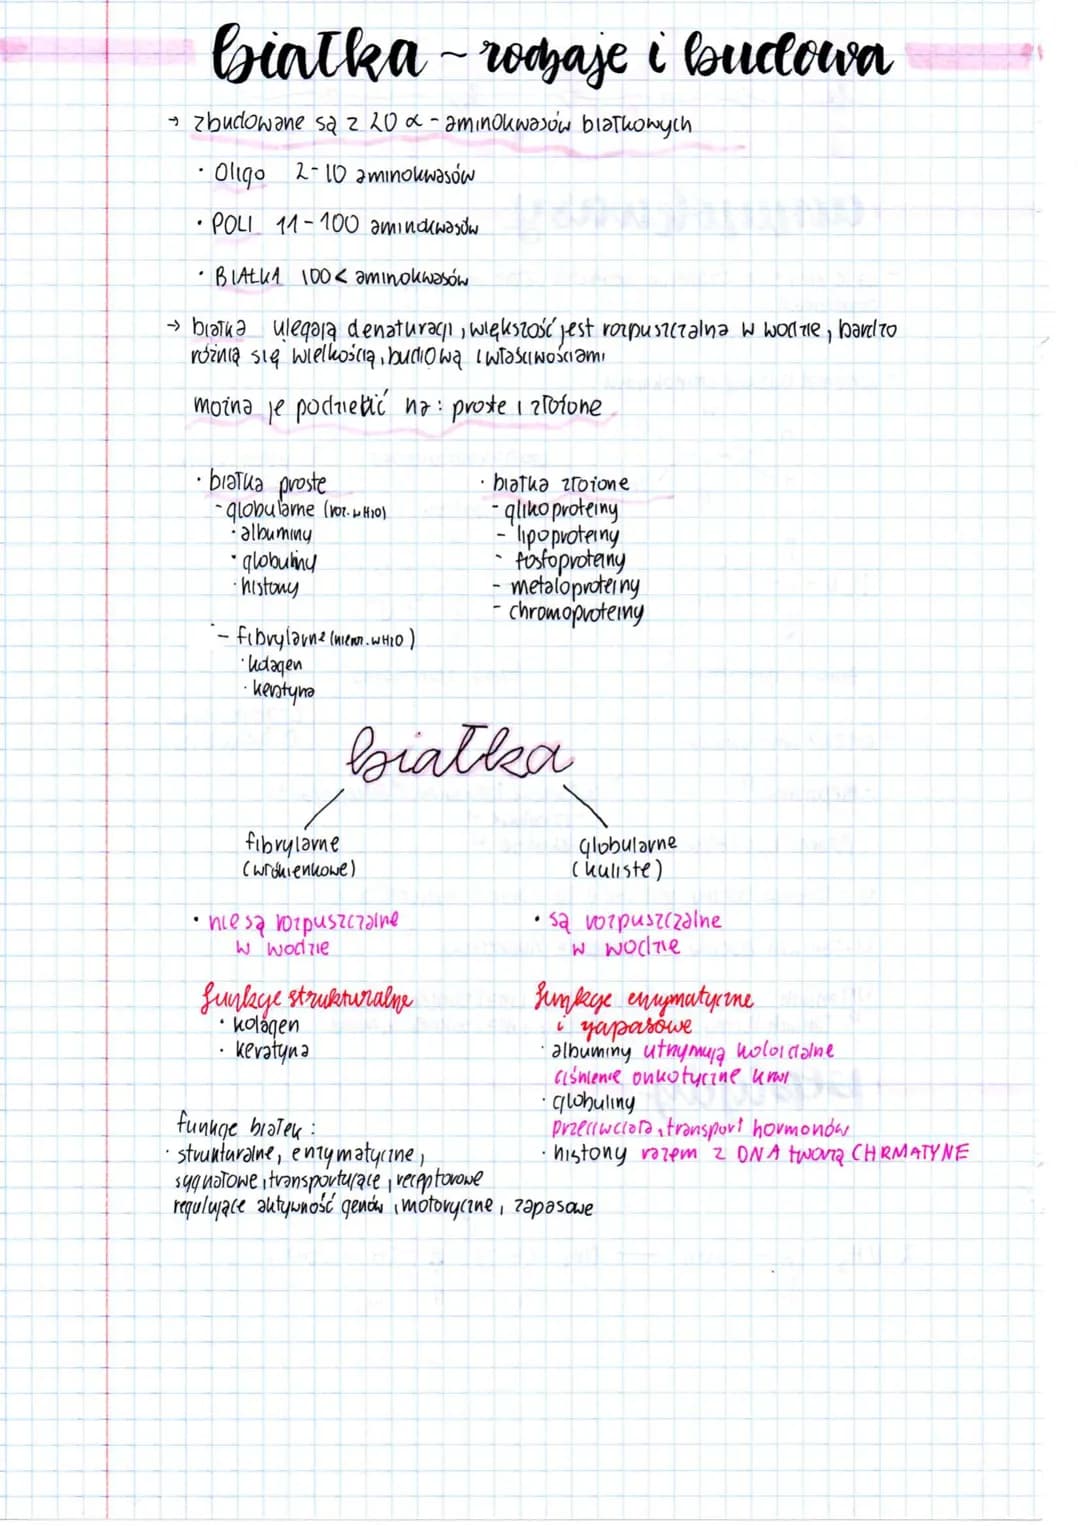 białka ~ rodzaje i budowa
→ zbudowane są z 20 α - aminokwasów białkowych
· Oligo 2-10 aminokwasów
· POLI 11-100 aminokwasów
· BIAŁKA 100< aminokwasów
→ białka ulegają denaturacji, większość jest rozpuszczalna w wodzie, bardzo
różnią się wielkością, budową i właściwościami
można je podzielić na: proste i złożone
· białka proste
- globularne (roz. w H2O)
· albuminy
· globuliny
· histony
- fibrylarne (nieroz. w H2O)
· kolagen
· keratyna
· białka złożone
- glikoproteiny
- lipoproteiny
- fosfoproteiny
- metaloproteiny
- chromoproteiny
białka
fibrylarne
(włókienkowe)
· nie są rozpuszczalne
w wodzie
funkcje strukturalne
· kolagen
· keratyna
globularne
(kuliste)
· są rozpuszczalne
w wodzie
funkcje enzymatyczne
i zapasowe
· albuminy utrzymują koloidalne
ciśnienie onkotyczne krwi
· globuliny
przeciwciała, transport hormonów
· histony razem z DNA tworzą CHRMATYNE
funkcje białek :
· strukturalne, enzymatyczne,
sygnałowe, transportujące, receptorowe
regulujące aktywność genów, motoryczne, zapasowe